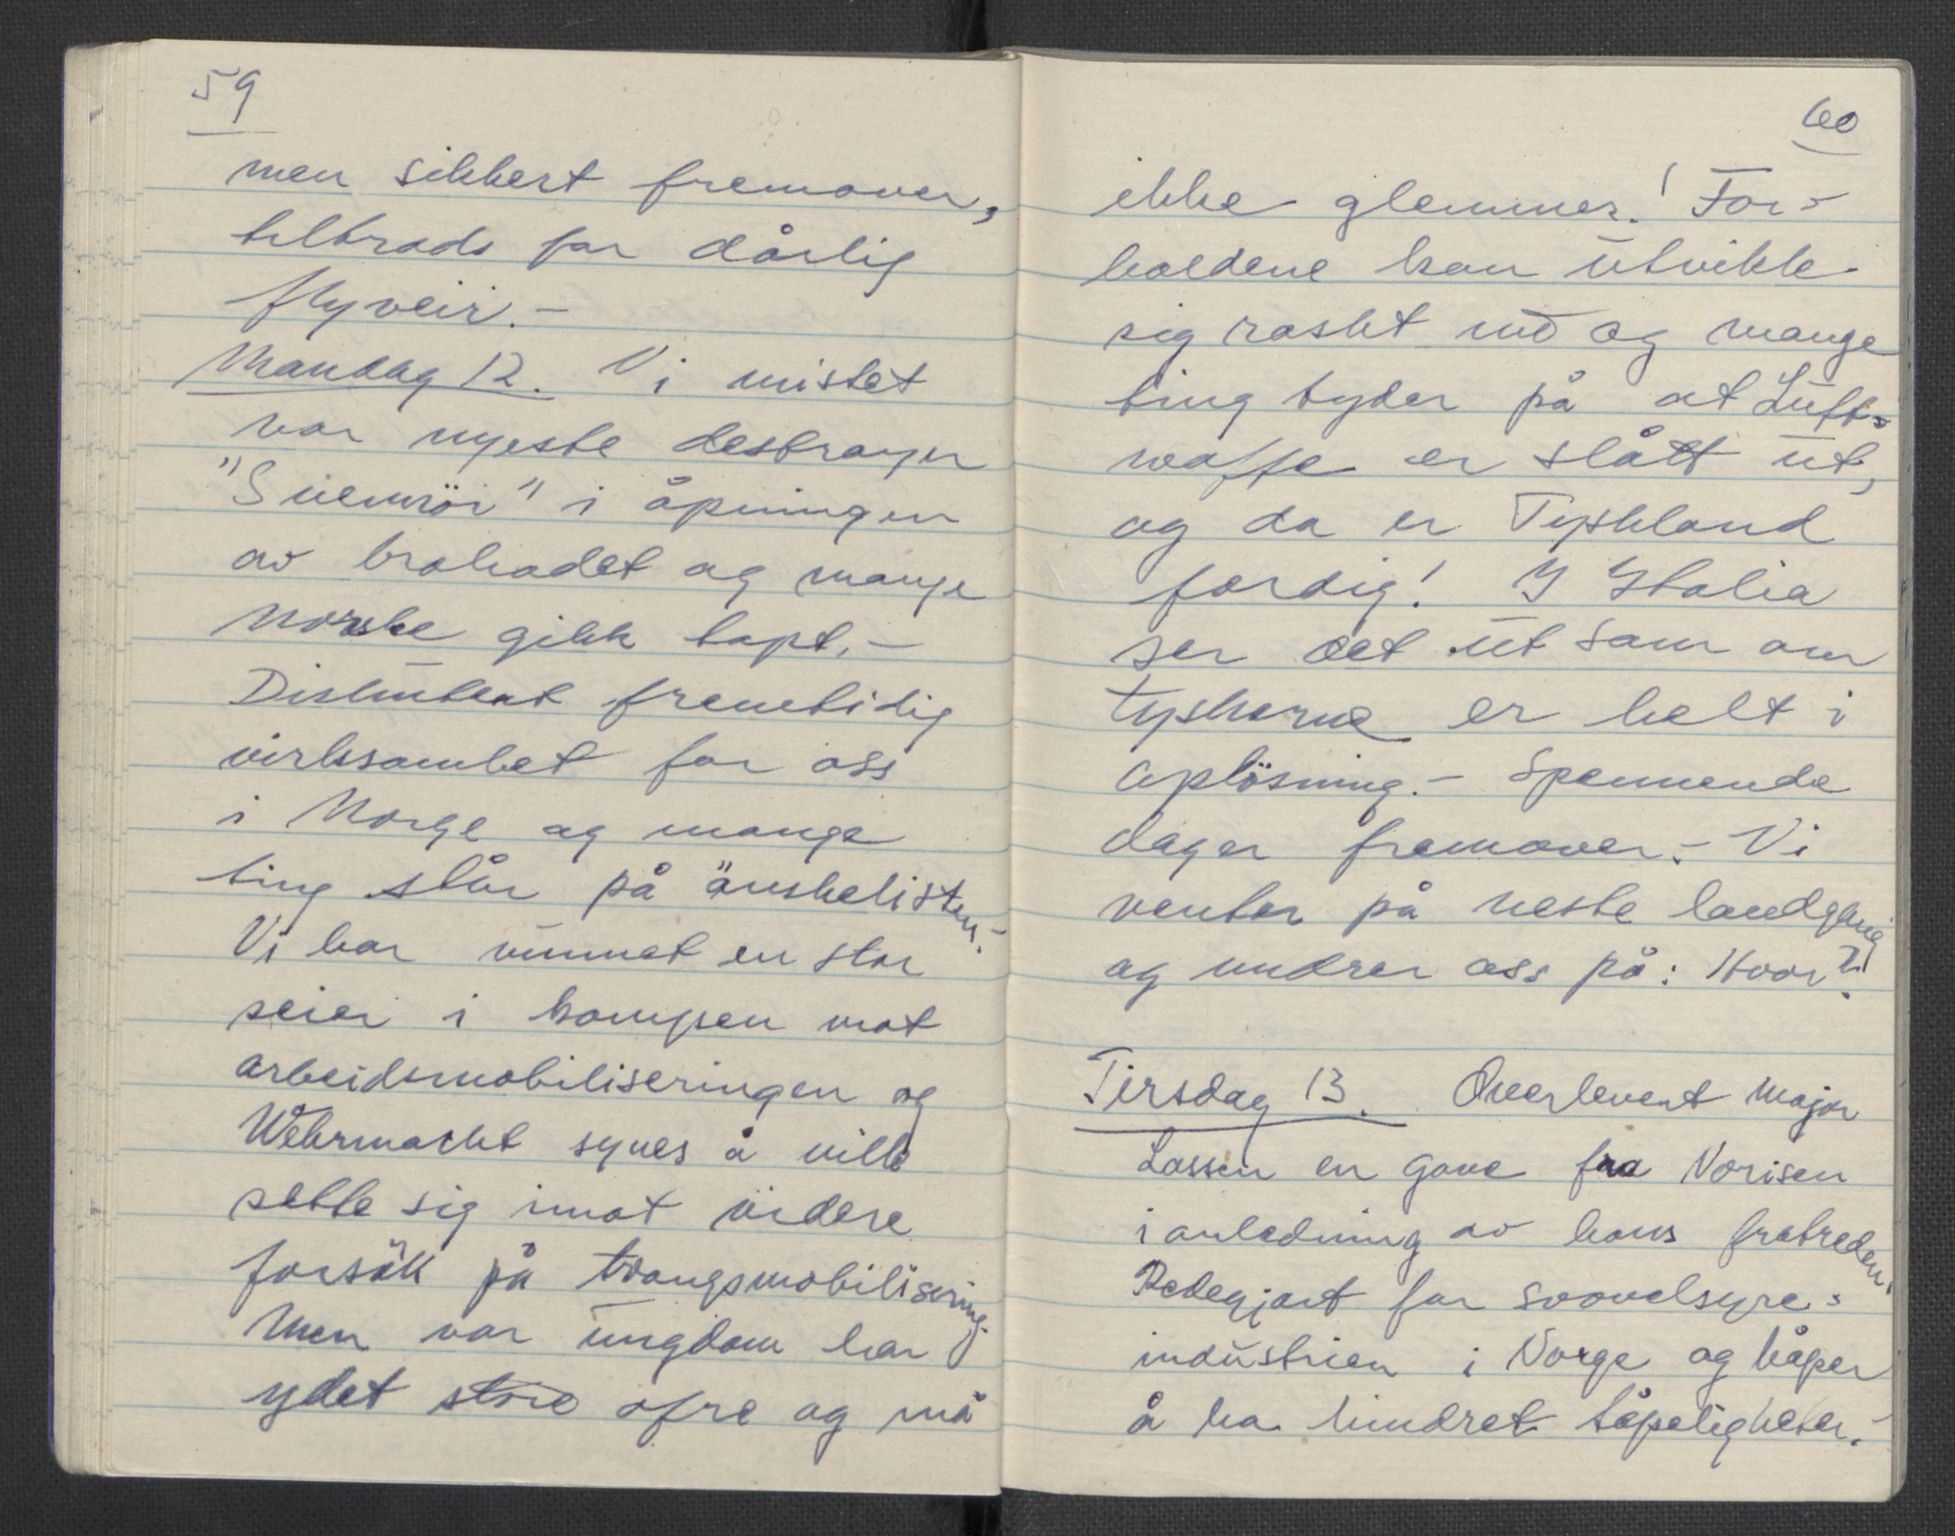 59
men sikkert fremover,
tiltrods for dårlig
flyveir.-
Mandag 12. Vi mistet
vor nyeste destroyer
"Svennör" i åpningen
av brohodet og mange
norske gikk tapt.-
Diskutert fremtidig
virksomhet for oss
i Norge og mange
ting står på önskelisten.-
Vi har vunnet en stor
seier i kampen mot
arbeidsmobiliseringen og
Wehrmacht synes å ville
sette sig imot videre
forsök på tvangsmobilisering.
Men vor ungdom har
ydet store ofre og må
60
ikke glemmes! For-
holdene kan utvikle
sig raskt nu og mange
ting tyder på at Luft-
waffe er slått ut,
og da er Tyskland
færdig! I Italia
ser det ut som om
tyskerne er helt i
oplösning.- Spennende
dager fremover.- Vi
venter på neste landgang
og undrer oss på: Hvor?!
Tirsdag 13. Overlevert Major
Lassen en gave fra Norisen
i anledning av hans fratreden.
Redegjort for svovelsyre-
industrien i Norge og håper
å ha hindret tåpeligheter.-